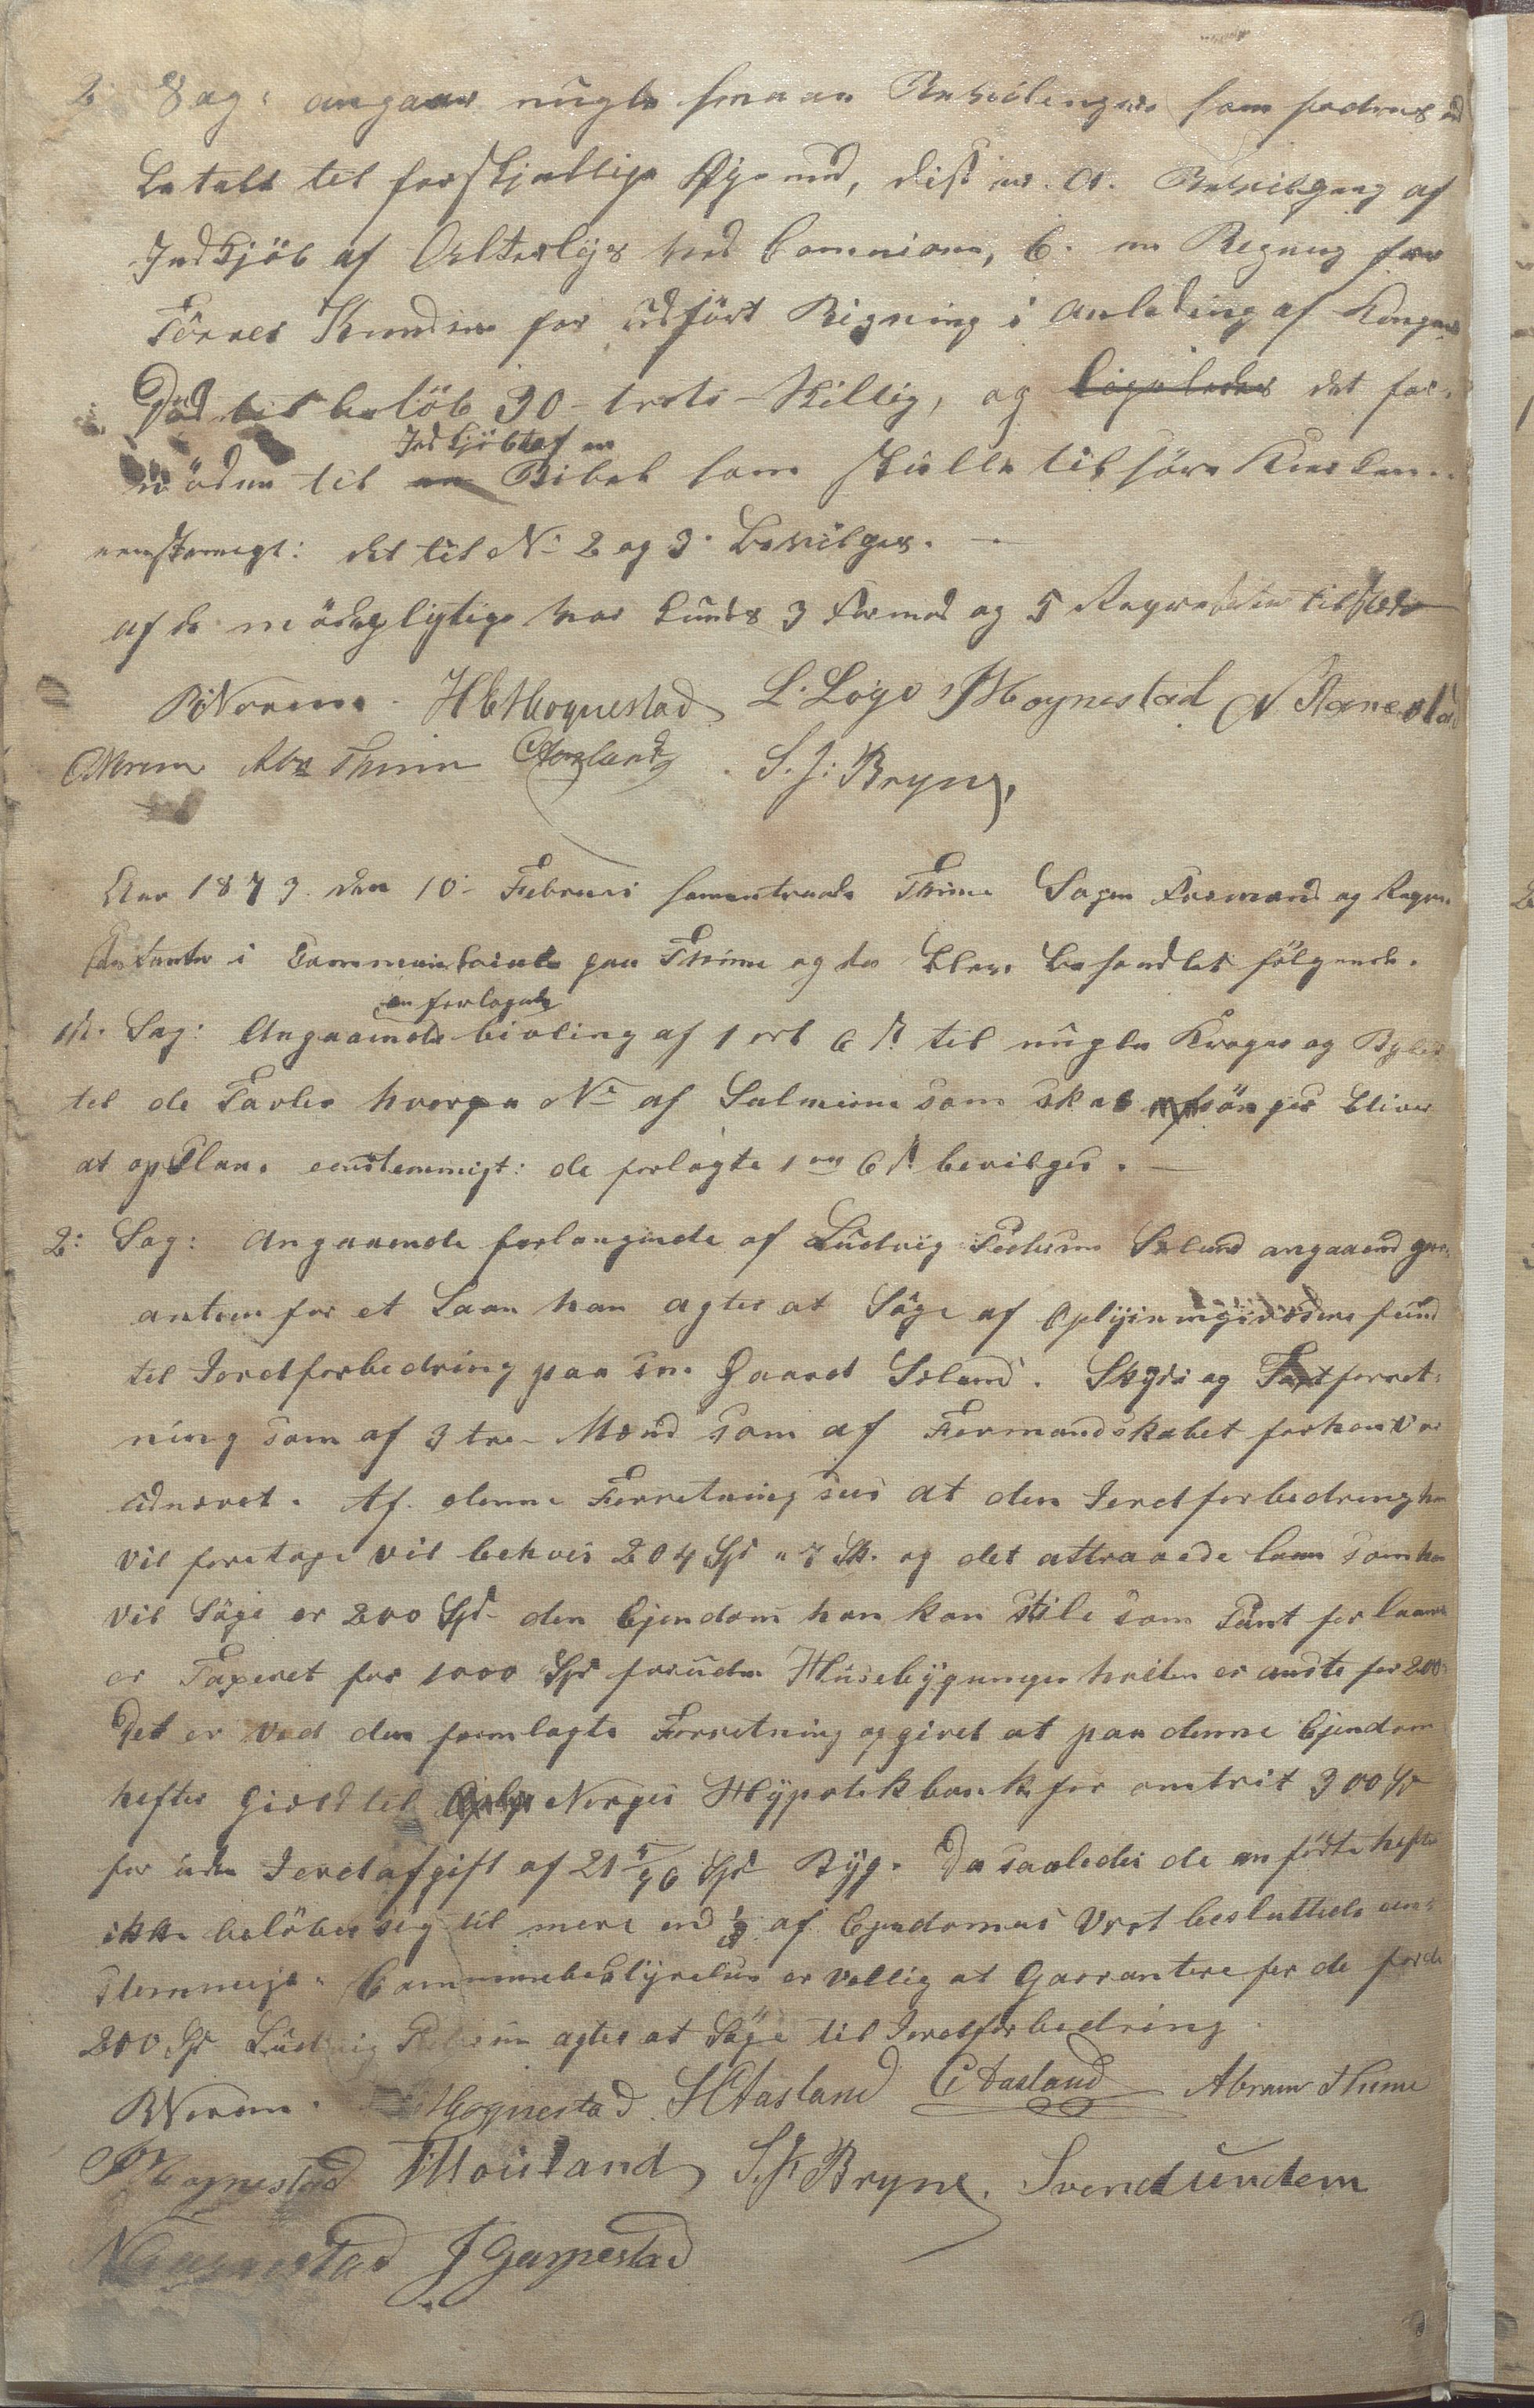 2 Sag: angaar nugle smaa Bevilenger som fordres
betalt til forskjellige Øyemd, dist er. A. Bevilgeng af
Indkjöb af Alterlys ved Comunion, B. en Regneng fra
Törres Knudsen for udfört Rigning i anleding af Kongens
Död til belöb 30 treti Skillig, og ligeledes det for-
Indkjöbt af en
nödne til en Bibel som skulle tilhöre Kirken.
eenstemegt: det til No 2 og 3 Bevilges.
af de mödepligtige har kuns 3 Formæd og 5 Repræsenta tilstæde
R Norem. H E Hognestad L. Loge J Hognestad N Garnestad
O Norem Abr Thime C Aasland S. J. Bryne,
Aar 1873 den 10 Februari samentraade Thime Sogns Formænd og Repre
sentanter i Communelocale paa Thime og der blev behandlet fölgende.
en forlagde
1st. Sag: Angaaende bivling af 1 ort 6 s til nugle Kroger og Byler
til de Tavler hvorpa No af Salmerne som skal afsönges bliver
at opslaa. eenstemmigt: de forlagte 1 ort 6 s bevilges.
2: Sag: Angaaende forlangende af Ludvig Pedersen Seland angaaend gar-
anteren for et Laan han agter at Söge af Oplysningsvæsdens fund
til Jordforbedring paa sin Gaard Seland. Skyds og Taxtforret-
ning som af 3 tre Mænd som af Formandskabet forhen var
udnævet. Af denne Forretning sees at den Jordforbedreng han
vil foretage vil behøves 204 Spd " 7 Sk. og det attraaede laan som han
vil Söge er 200 Spd den Ejendom han kan stile som Pant for laanet
er Taxeret for 1000 Spd foruden Husebygninger hvilen er ansats for 200
Det er ved den fremlagte Forretning opgivet at paa denne Ejendom
hefter Gjæld til Norges Hypotekbank for omtrit 300 Spd
for uden Jordafgift af 21 5/96 Spd Byg. Da saaledes de anförte hefte
ikke belöber sig til mere end af Ejendomes Vært besluttede een-
stemmigt: Communebestyrelsen er vellig at Garrantere for de
200 Spd Ludvig Pedersen agter at Söge til Jordforbedring
R Norem. Hognestad. H Aasland C Aasland Abram Thime
J Hognestad T Houland S. J. Bryne. Svend Undem
N Garnestad J Garpestad